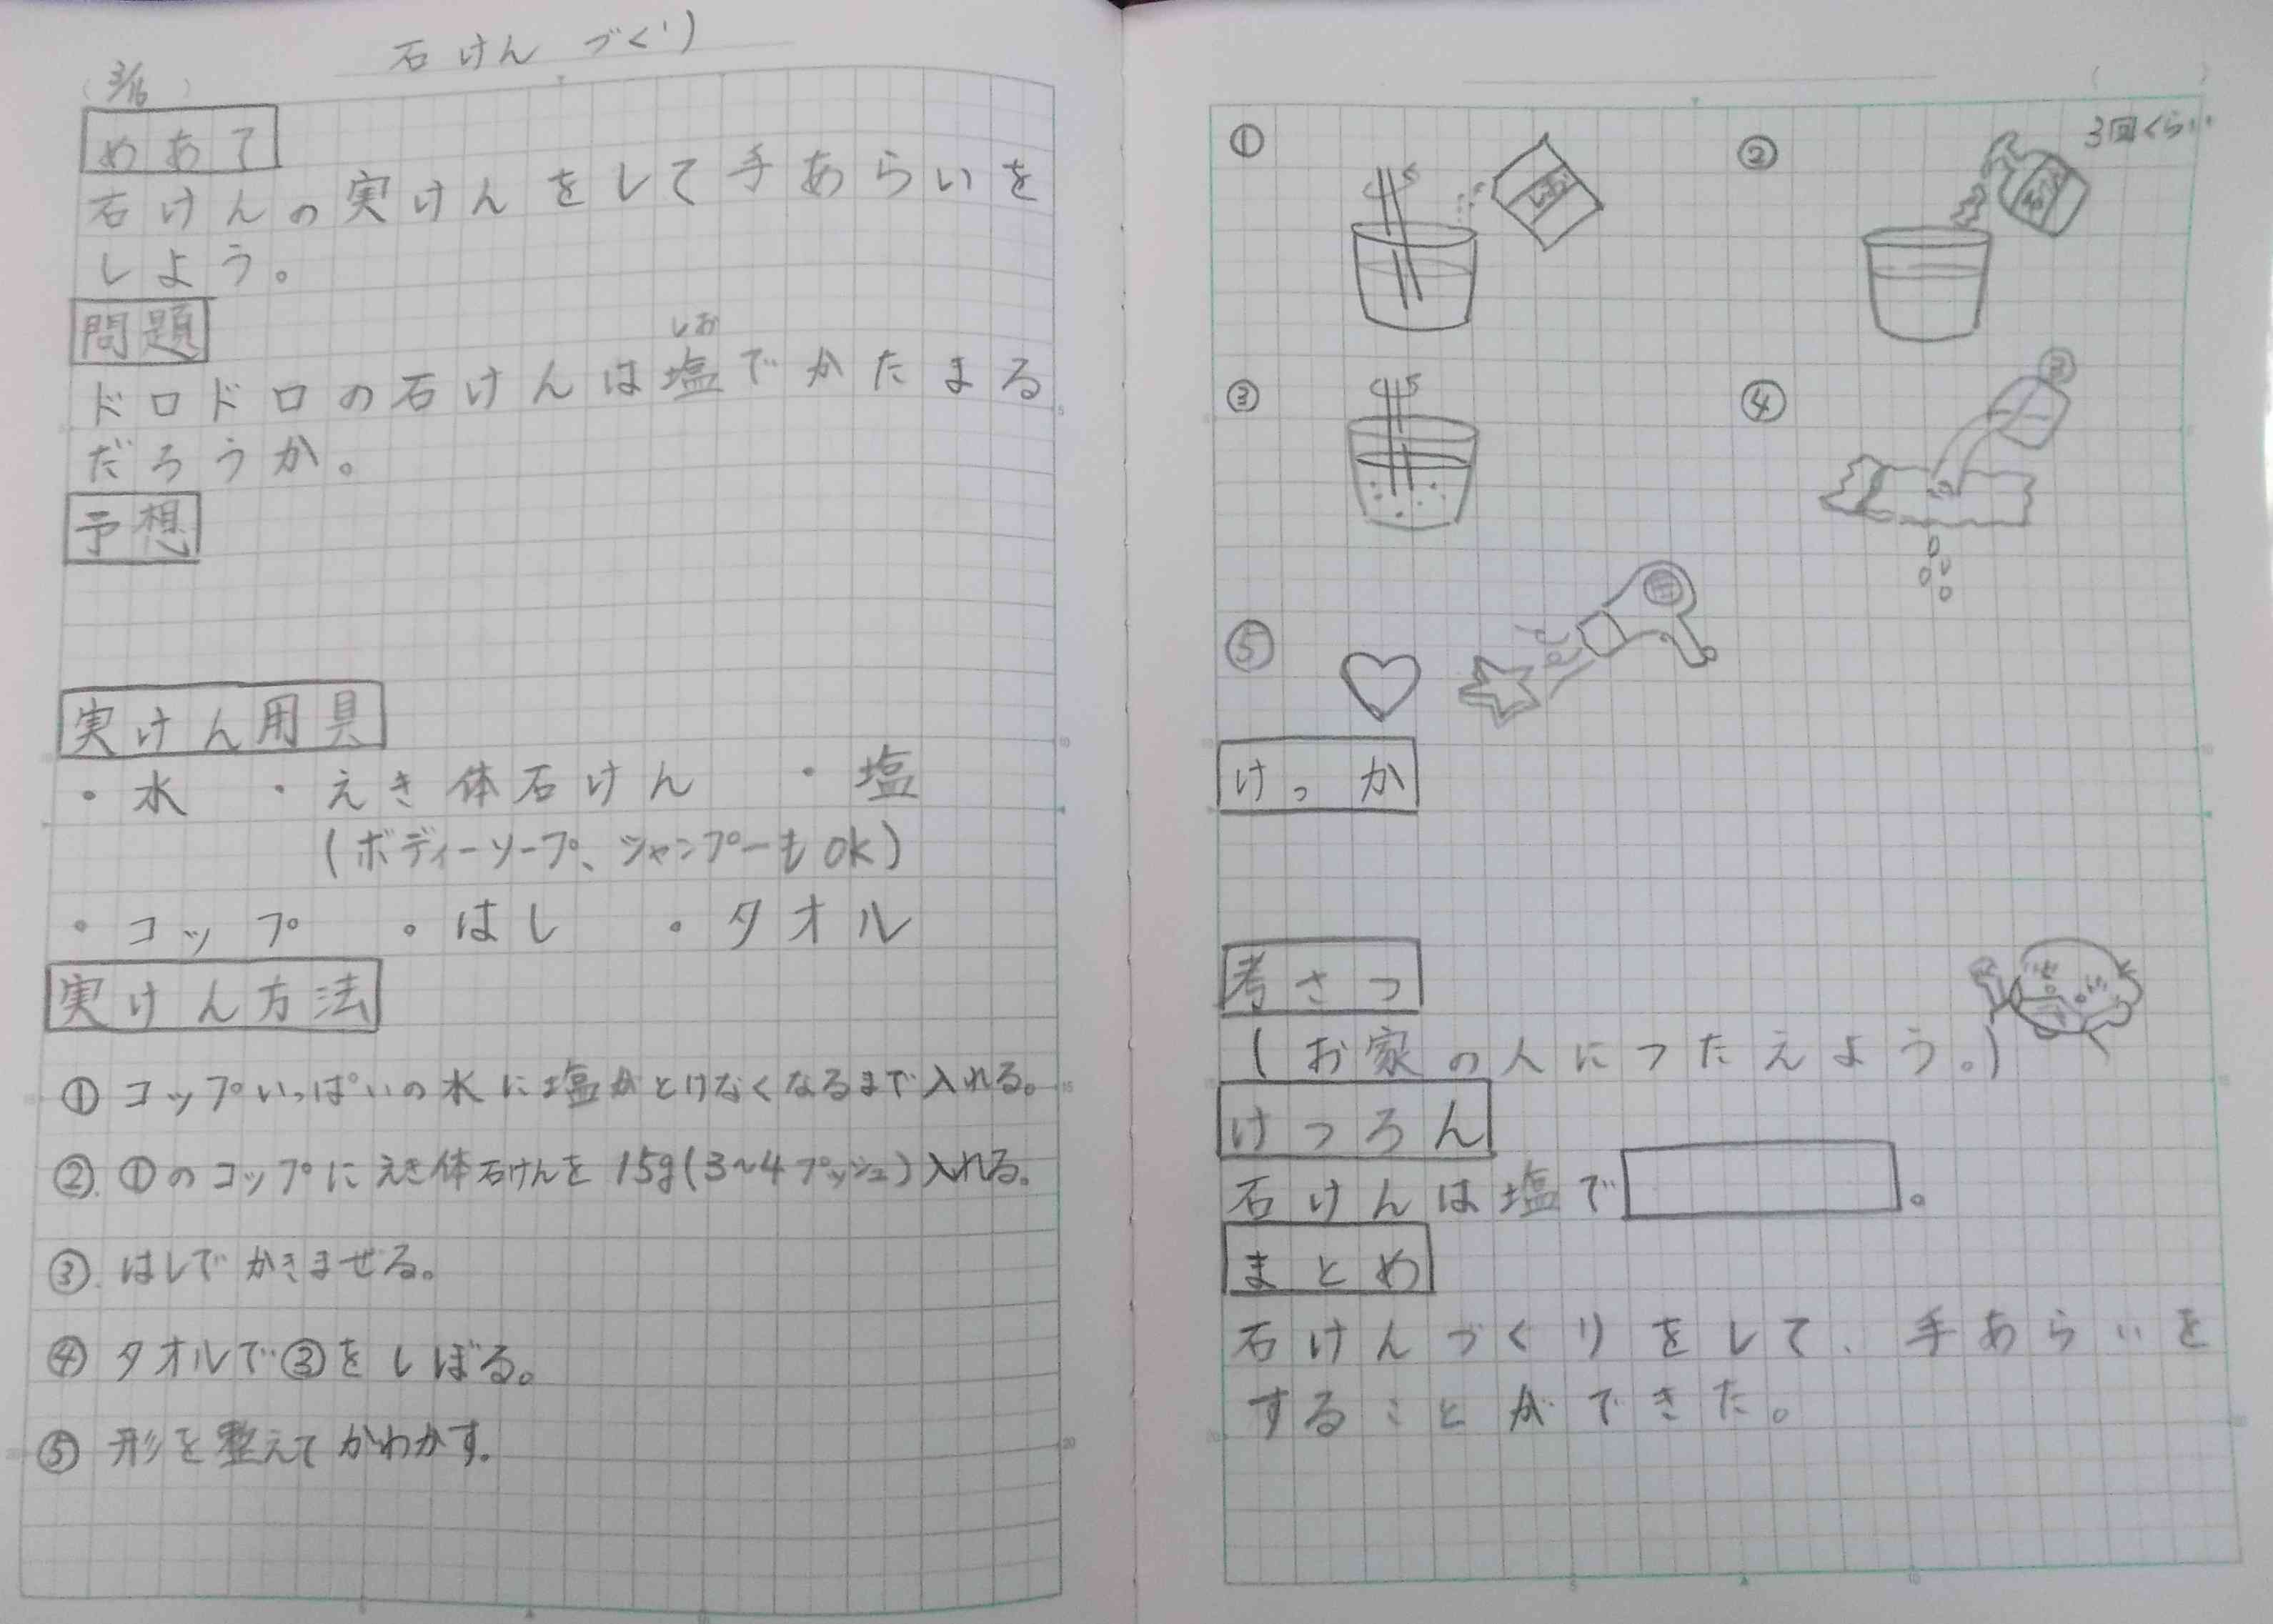 石けんづくり
(3/16)
めあて
石けんの実けんをして手あらいを
しよう。
問題
しお
ドロドロの石けんは塩でかたまる
だろうか。
予想
実けん用具
・水 ・えき体石けん ・塩
(ボディーソープ、シャンプーもOK)
・コップ ・はし ・タオル
実けん方法
① コップいっぱいの水に塩がとけなくなるまで入れる。
② ①のコップにえき体石けんを15g(3~4プッシュ)入れる。
③ はしでかきまぜる。
④ タオルで③をしぼる。
⑤ 形を整えてかわかす。
① しお
② 3回くらい
③
④ ③
⑤
けっか
考さつ
(お家の人につたえよう。)
けつろん
石けんは塩で 。
まとめ
石けんづくりをして、手あらいを
することができた。